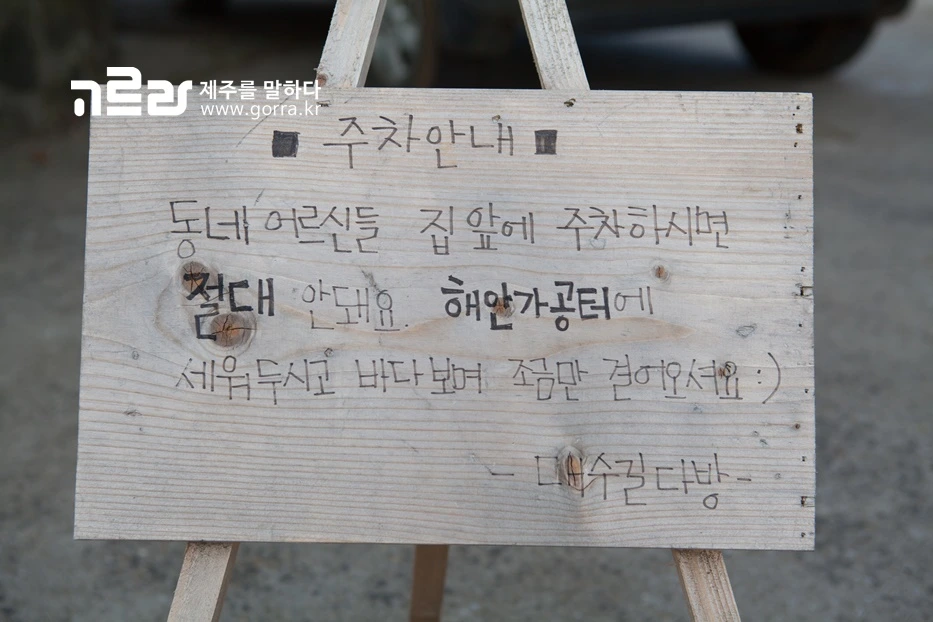 고르라 제주를 말하다
www.gorra.kr
■ 주차안내 ■
동네 어르신들 집 앞에 주차하시면
절대 안돼요. 해안가공터에
세워두시고 바다보며 조금만 걸어오셔요 :)
- 대수길다방 -